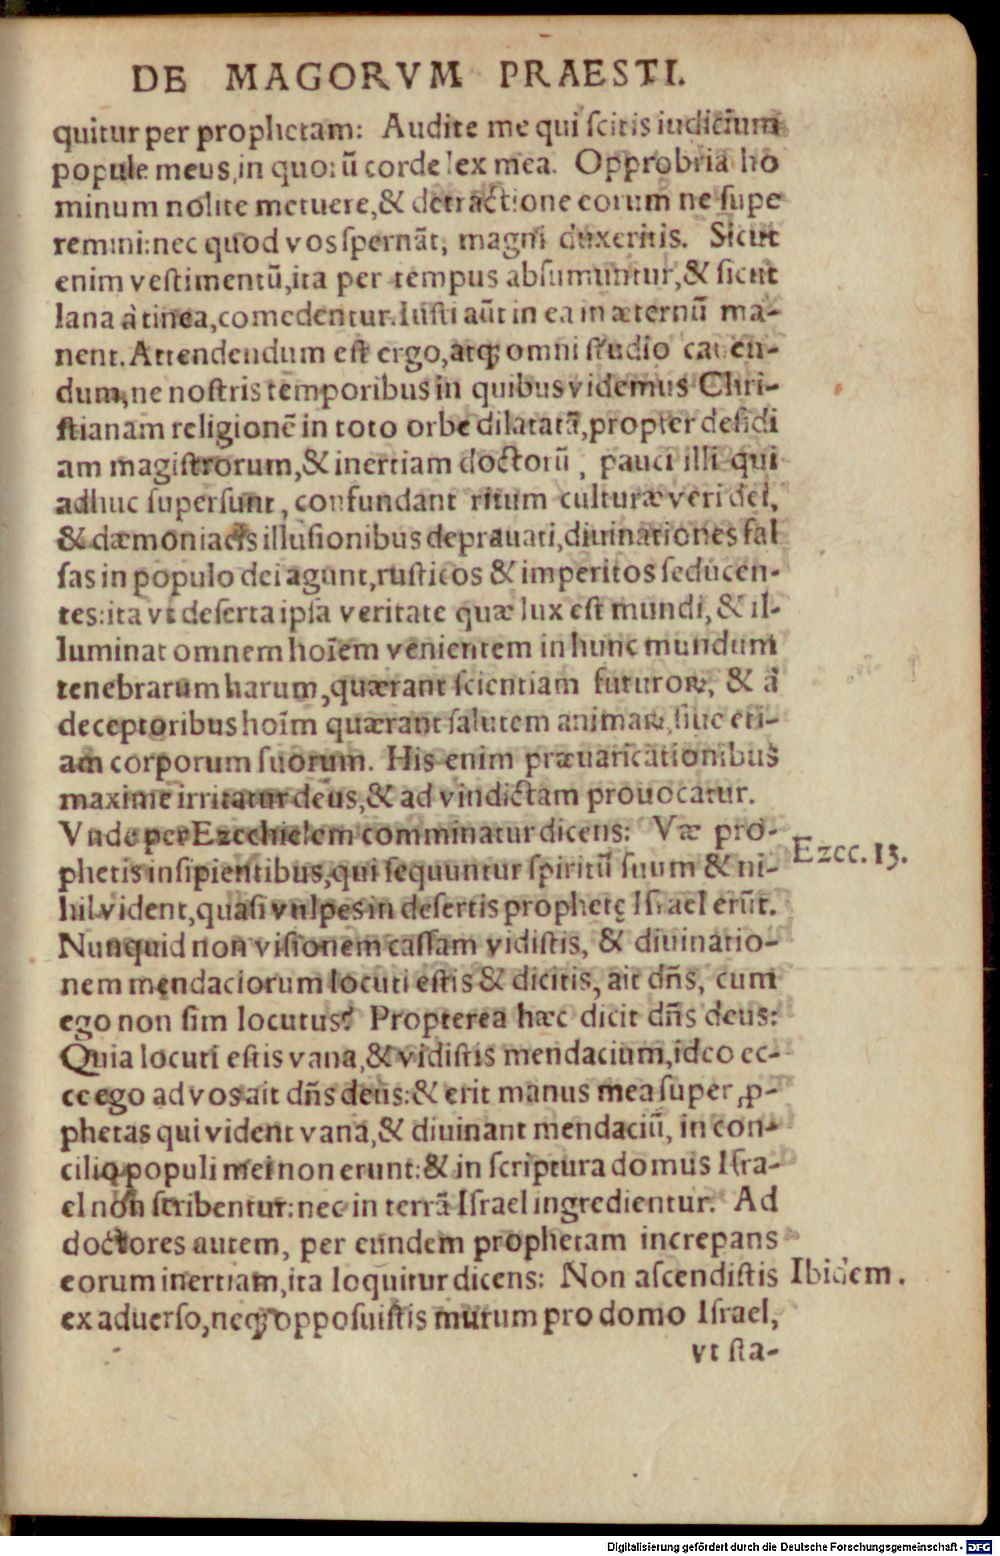 DE MAGORVM PRAESTI.
quitur per prophetam: Audite me qui scitis iudicium
popule meus, in quorū corde lex mea. Opprobria ho
minum nolite metuere, & detractione eorum ne supe
remini: nec quod vos spernāt, magni duxeritis. Sicut
enim vestimentū, ita per tempus absumuntur, & sicut
lana à tinea, comedentur. Iusti aūt in ea in æternū ma-
nent. Attendendum est ergo, atq; omni studio cauen-
dum, ne nostris temporibus in quibus videmus Chri-
stianam religionē in toto orbe dilatatā, propter desidi
am magistrorum, & inertiam doctorū, pauci illi qui
adhuc supersunt, confundant ritum culturæ veri dei,
& dæmoniacis illusionibus deprauati, diuinationes fal
sas in populo dei agunt, rusticos & imperitos seducen-
tes: ita vt deserta ipsa veritate quæ lux est mundi, & il-
luminat omnem hoīem venientem in hunc mundum
tenebrarum harum, quærant scientiam futuroꝝ, & à
deceptoribus hoīm quærant salutem animaꝝ, siue eti-
am corporum suorum. His enim præuaricationibus
maxime irritatur deus, & ad vindictam prouocatur.
Vnde per Ezechielem comminatur dicens: Væ pro-
Ezec. 13.
phetis insipientibus, qui sequuntur spiritū suum & ni-
hil vident, quasi vulpes in desertis prophetę Israel erūt.
Nunquid non visionem cassam vidistis, & diuinatio-
nem mendaciorum locuti estis & dicitis, ait dñs, cum
ego non sim locutus? Propterea hæc dicit dñs deus:
Quia locuti estis vana, & vidistis mendacium, ideo ec-
ce ego ad vos ait dñs deus: & erit manus mea super ꝓ-
phetas qui vident vana, & diuinant mendaciū, in con-
cilio populi mei non erunt: & in scriptura domus Isra-
el non scribentur: nec in terrā Israel ingredientur. Ad
doctores autem, per eundem prophetam increpans
eorum inertiam, ita loquitur dicens: Non ascendistis
Ibidem.
ex aduerso, neq; opposuistis murum pro domo Israel,
vt sta-
Digitalisierung gefördert durch die Deutsche Forschungsgemeinschaft - DFG